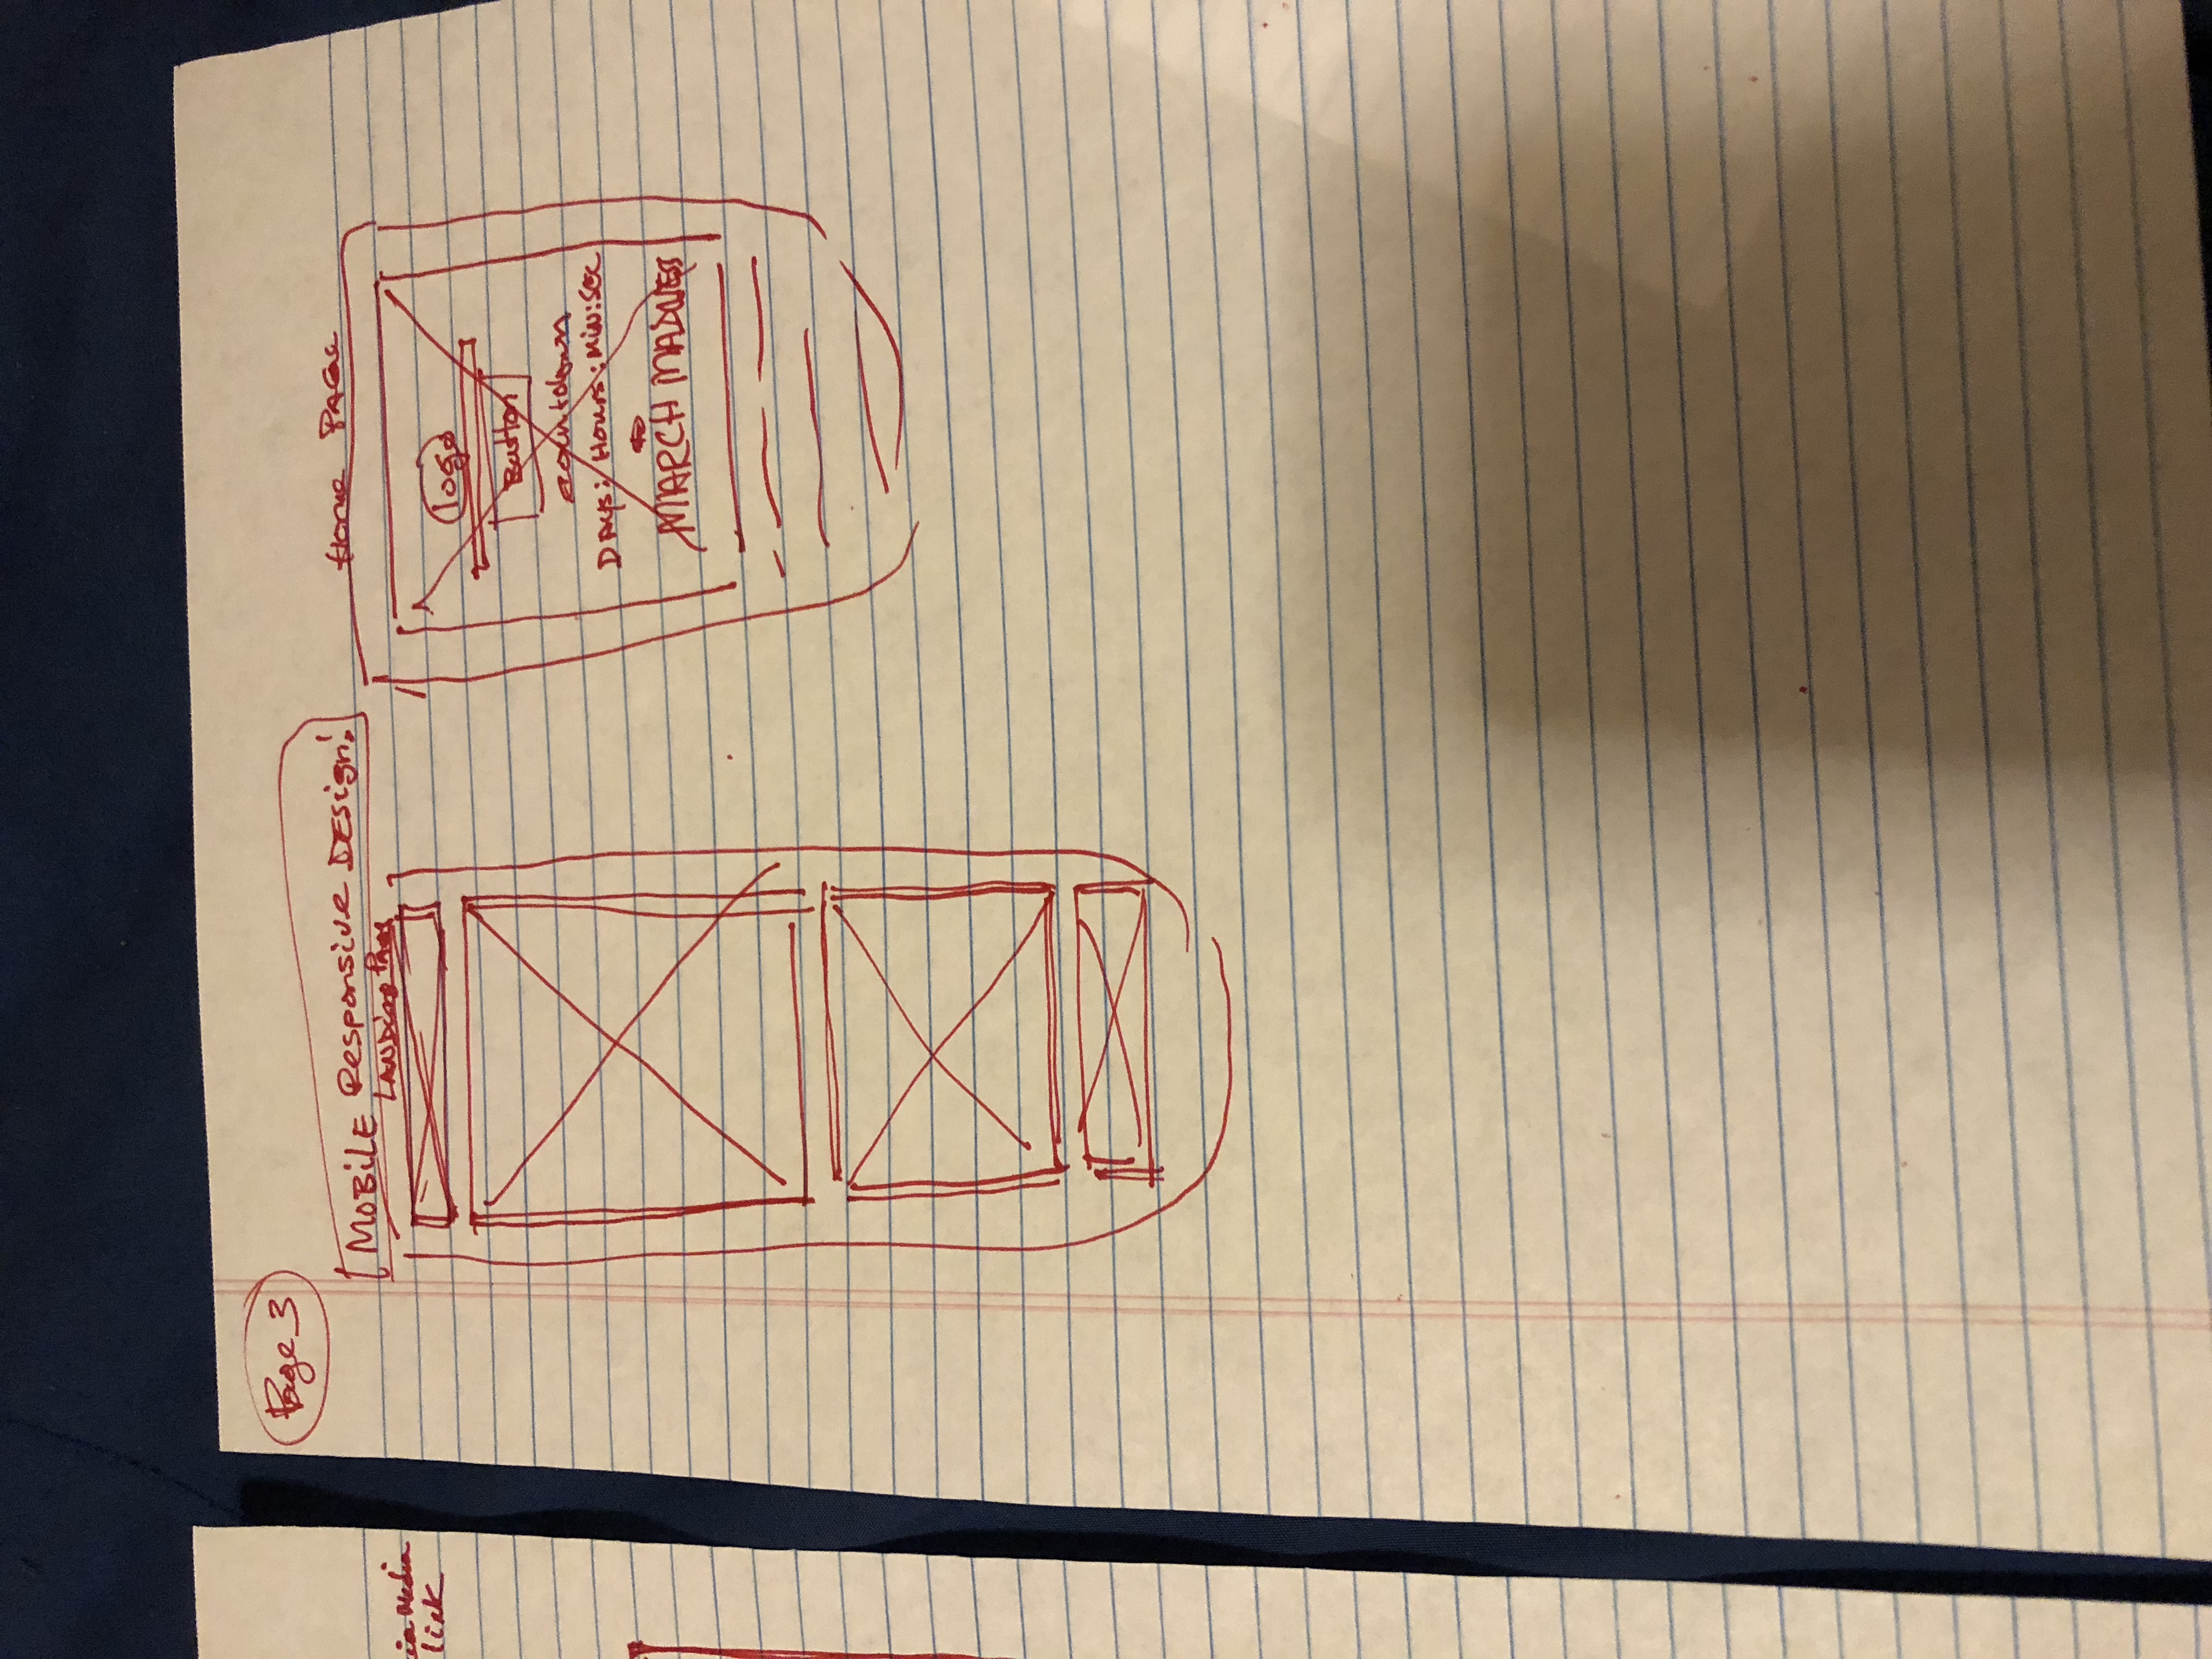 Page 3
MOBILE Responsive DESign!
LANDing Page
Home PAGe
logo
Button
countdown
DAYs: Hours: MIN:SEC
MARCH MADNESS
Media
link